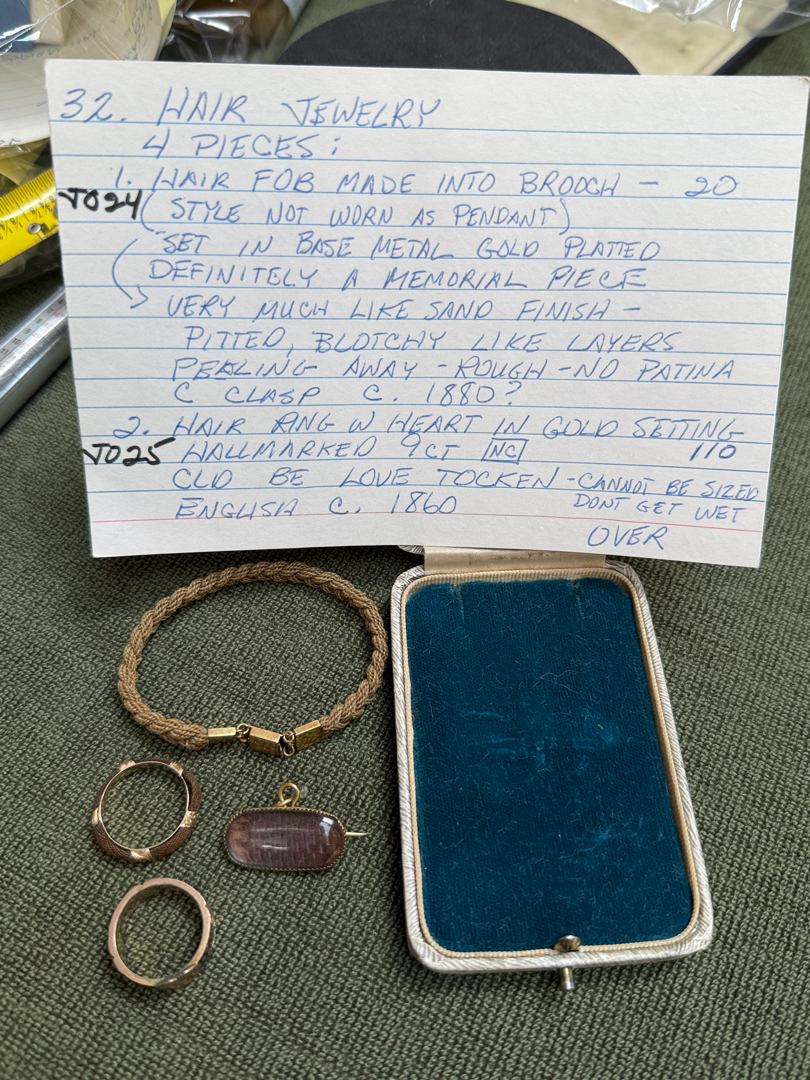 32. HAIR JEWELRY
4 PIECES:
1. HAIR FOB MADE INTO BROOCH - 20
JO24 (STYLE NOT WORN AS PENDANT)
"SET IN BASE METAL GOLD PLATTED
DEFINITELY A MEMORIAL PIECE
VERY MUCH LIKE SAND FINISH -
PITTED, BLOTCHY LIKE LAYERS
PEALING AWAY - ROUGH - NO PATINA
C CLASP C. 1880?
2. HAIR RING W HEART IN GOLD SETTING
JO25 HALLMARKED 9CT NC 110
CLD BE LOVE TOCKEN - CANNOT BE SIZED
DONT GET WET
ENGLISH C. 1860
OVER